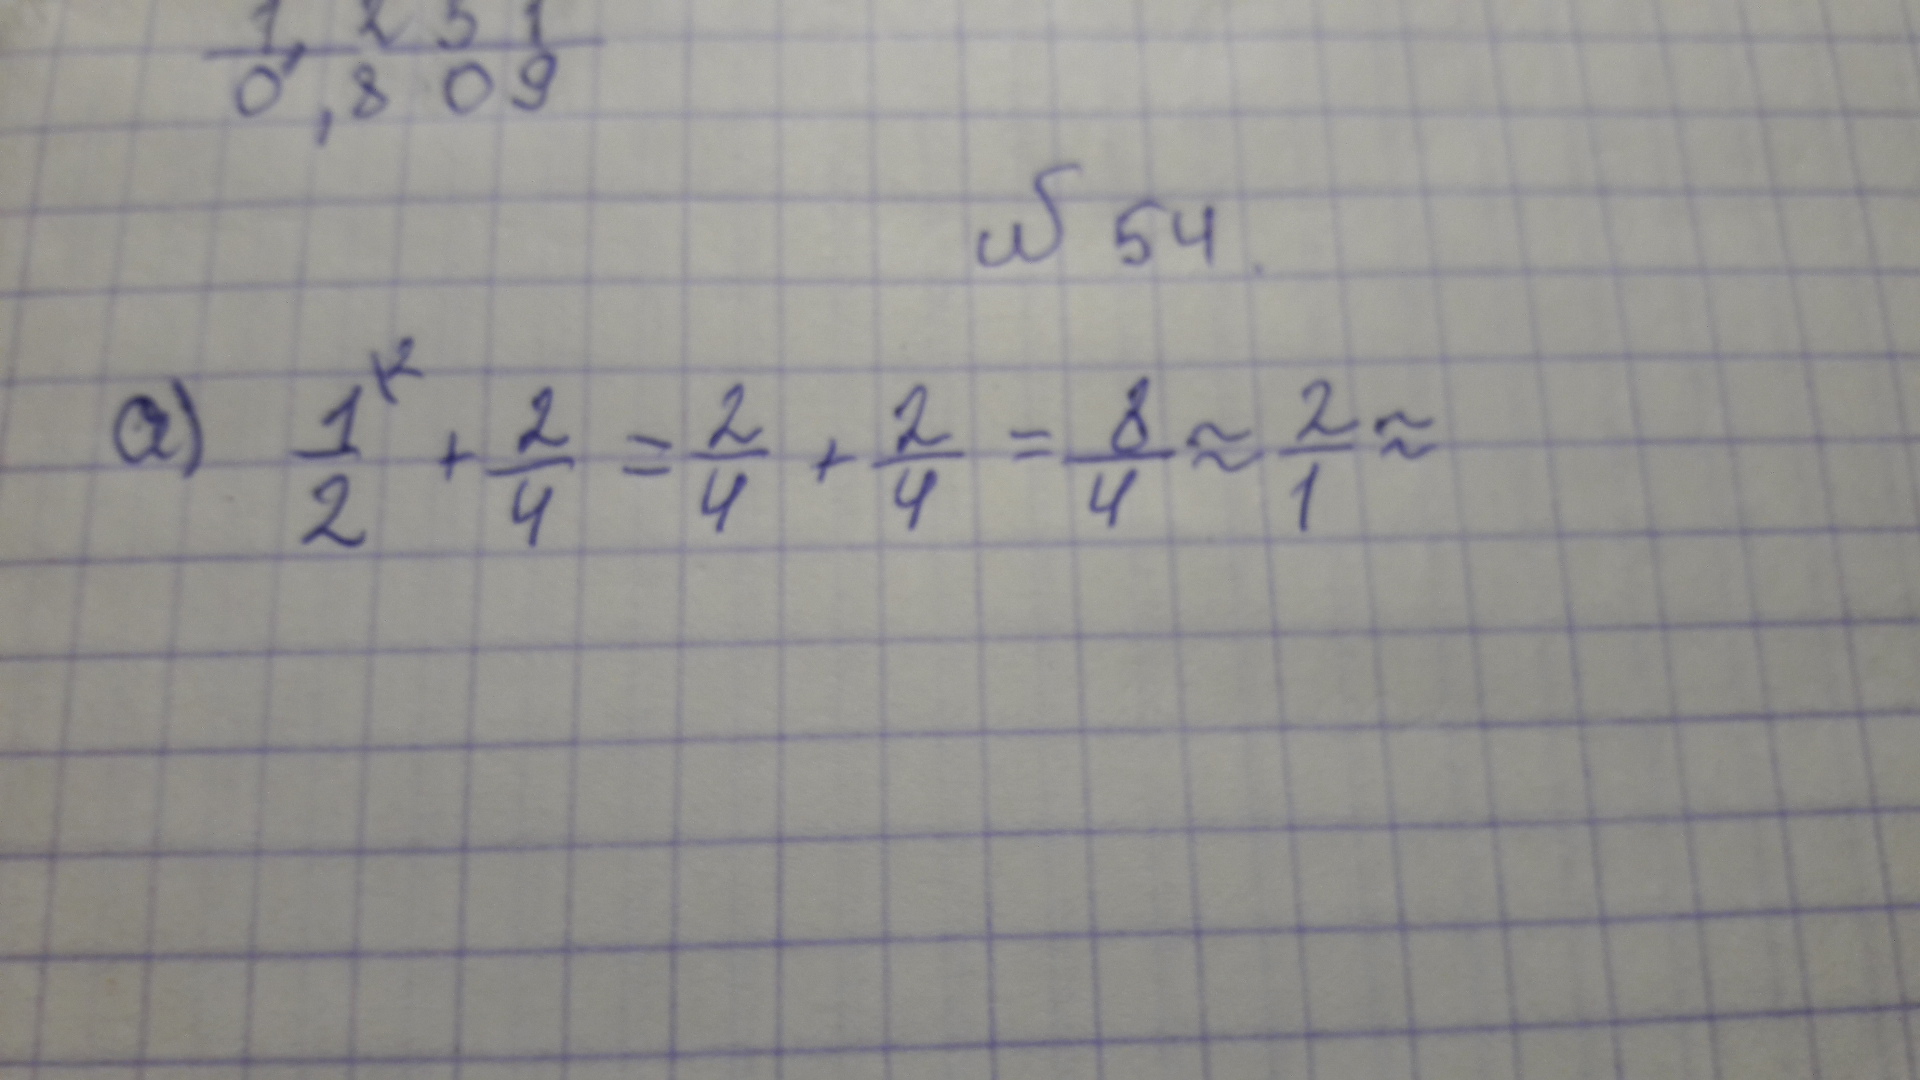 1,251
0,809
№ 54.
а) 1/2 + 2/4 = 2/4 + 2/4 = 8/4 ≈ 2/1 ≈